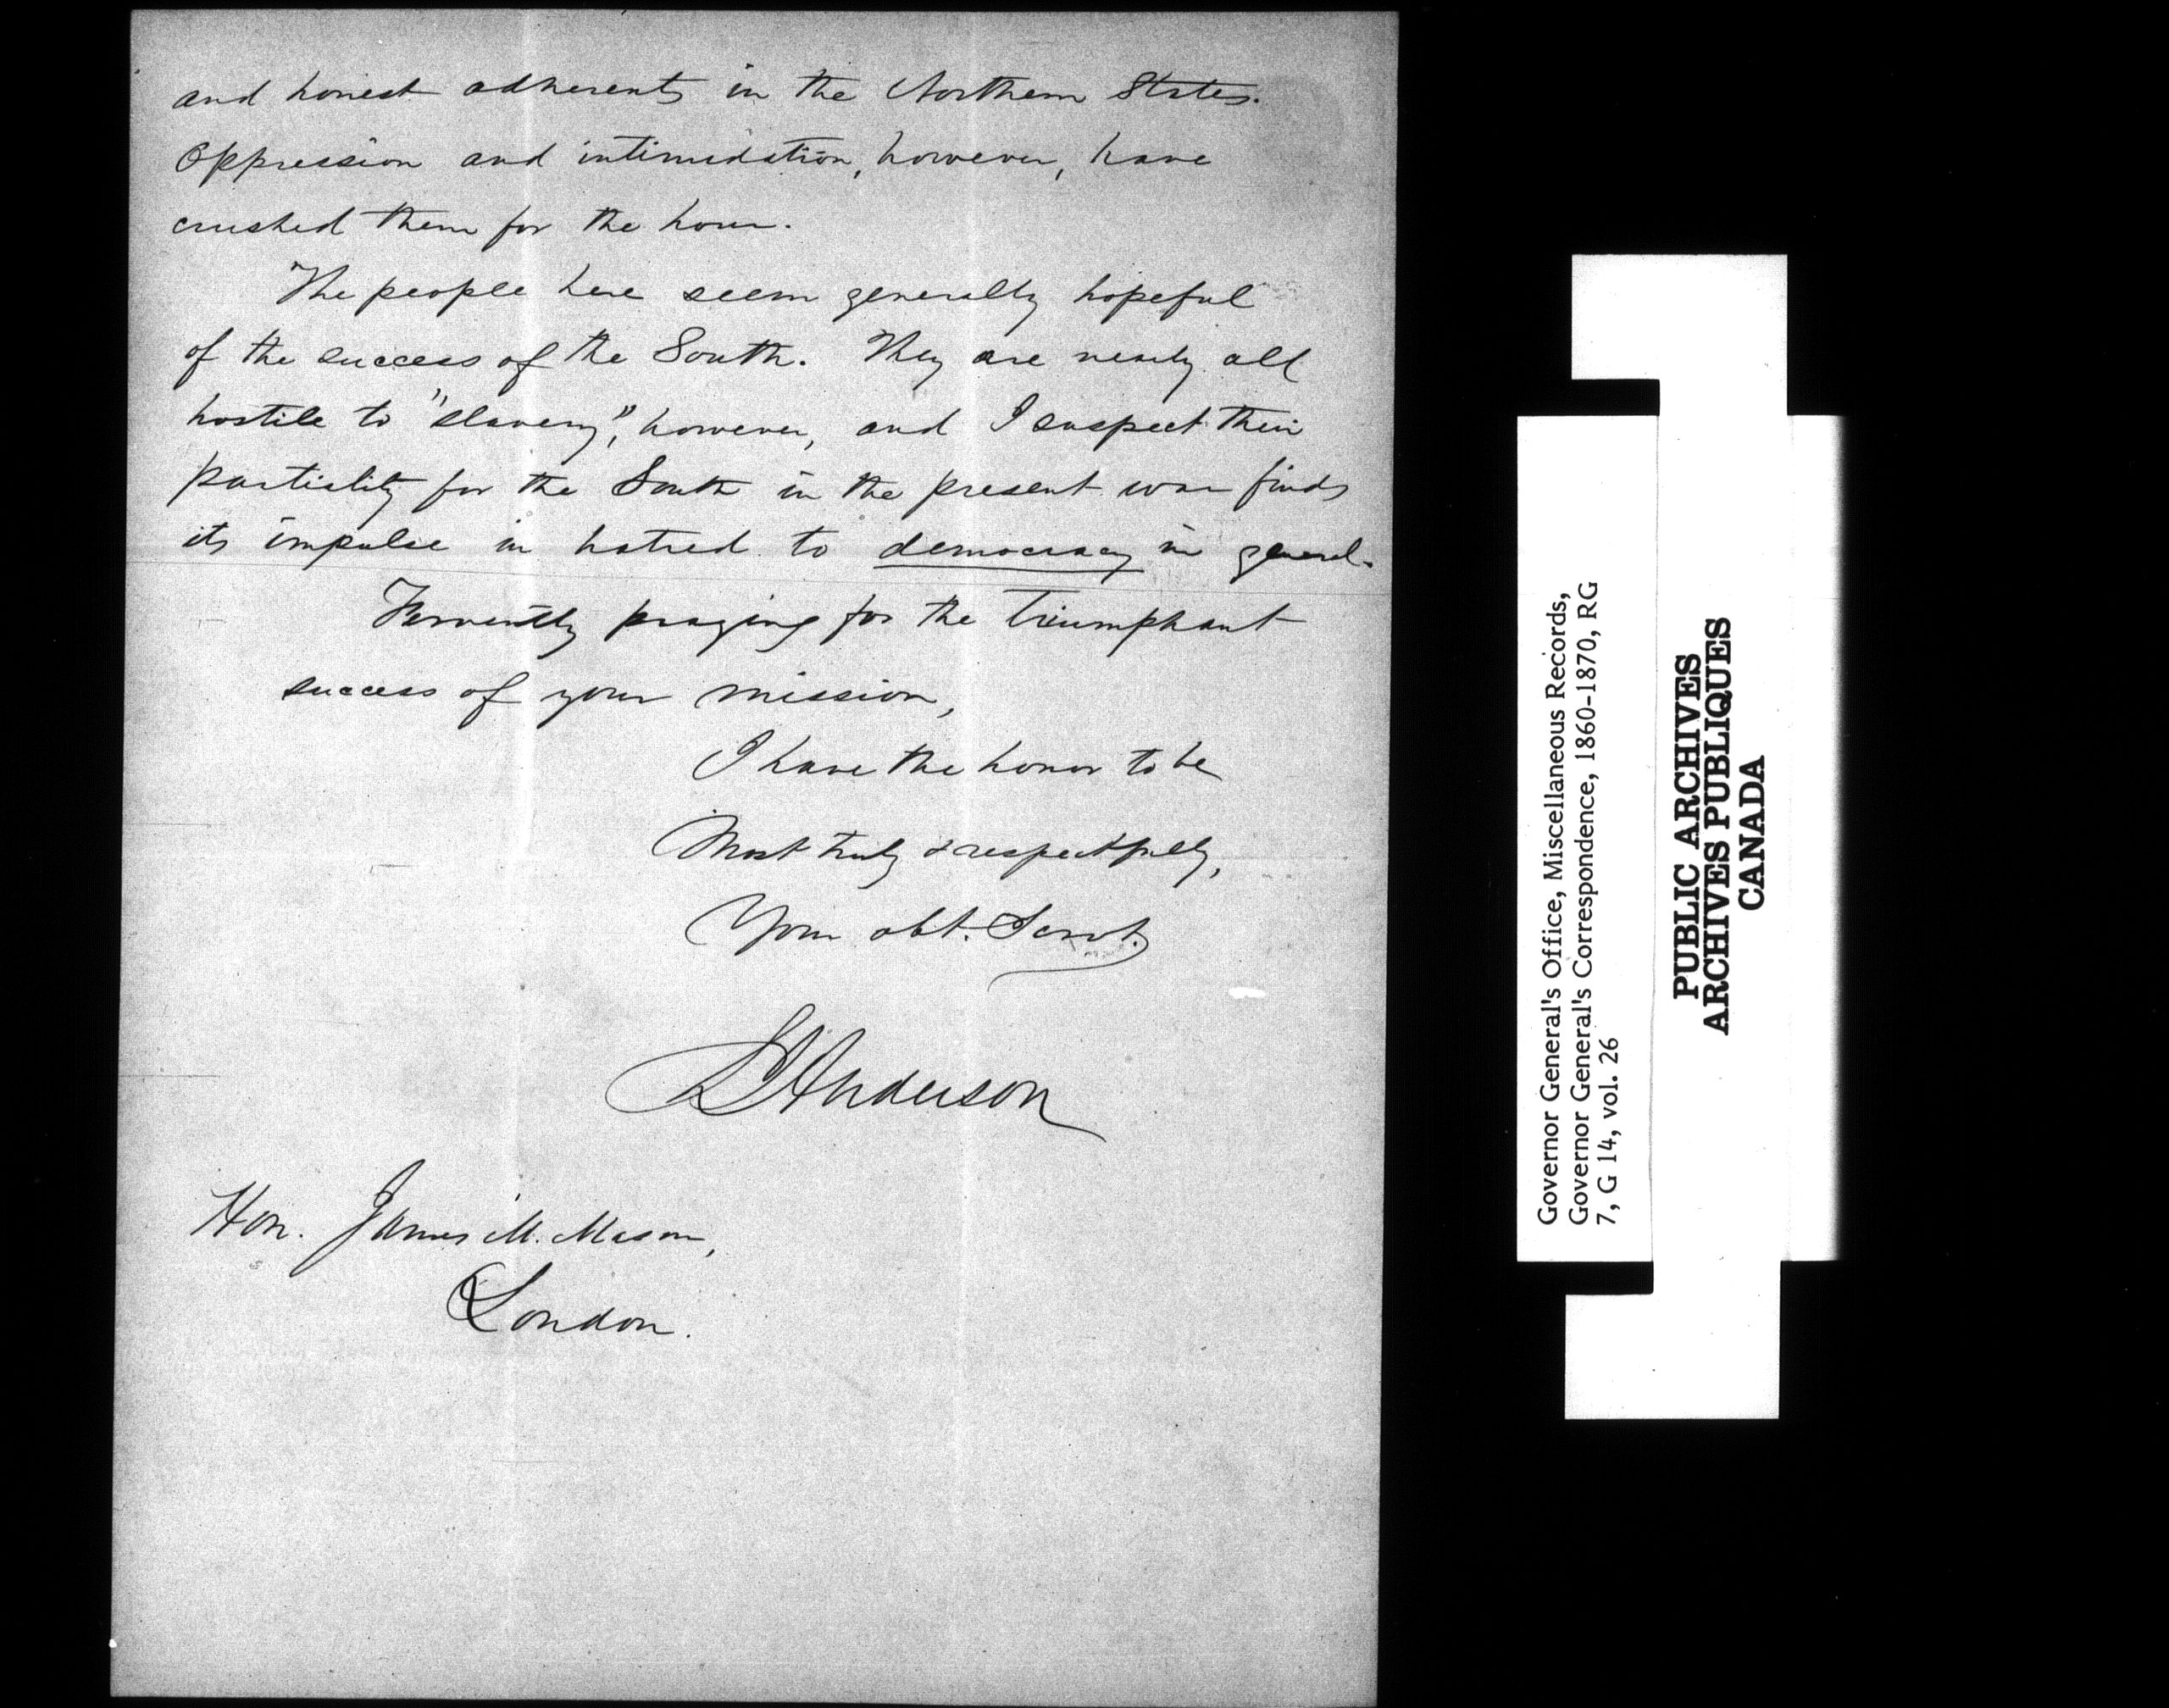 and honest adherents in the Northern States.
Oppression and intimidation, however, have
crushed them for the hour.
The people here seem generally hopeful
of the success of the South. They are nearly all
hostile to "slavery", however, and I suspect their
partiality for the South in the present war finds
its impulse in hatred to democracy in general.
Fervently praying for the triumphant
success of your mission,
I have the honor to be
Most truly & respectfully,
Your obt. Servt.
Anderson
Hon. James M. Mason,
London.
Governor General's Office, Miscellaneous Records,
Governor General's Correspondence, 1860-1870, RG
7, G 14, vol. 26
PUBLIC ARCHIVES
ARCHIVES PUBLIQUES
CANADA